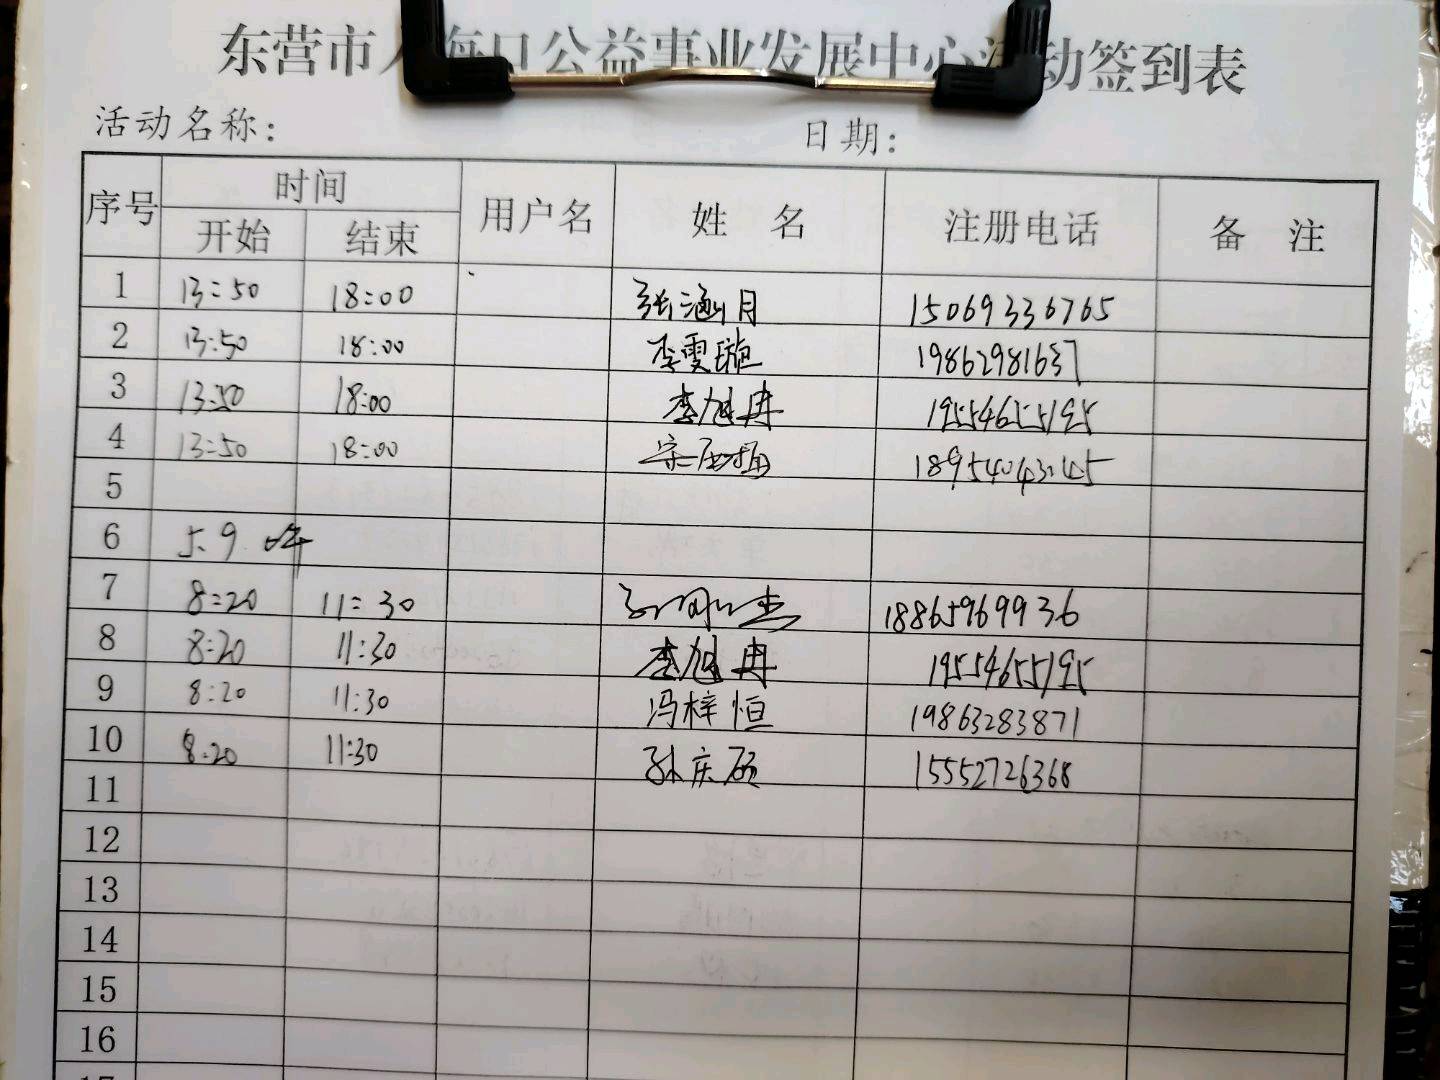 东营市入海口公益事业发展中心活动签到表
活动名称： 日期：
序号 时间 用户名 姓 名 注册电话 备 注
开始 结束
1 13:50 18:00 张涵月 15069336765
2 13:50 18:00 李雯璇 19862981637
3 13:50 18:00 李旭冉 19554655195
4 13:50 18:00 18954043245
5
6 5.9
7 8:20 11:30 18865969936
8 8:20 11:30 李旭冉 19554655195
9 8:20 11:30 冯梓恒 19863283871
10 8:20 11:30 孙庆硕 15552726368
11
12
13
14
15
16
17